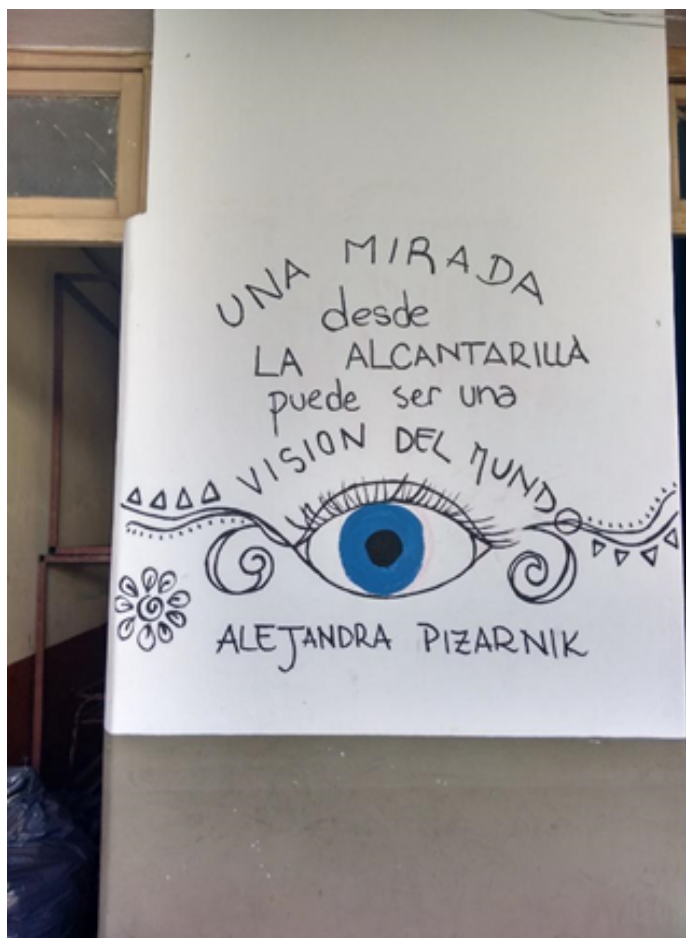 UNA MIRADA
desde
LA ALCANTARILLA
puede ser una
VISION DEL MUNDO
ALEJANDRA PIZARNIK